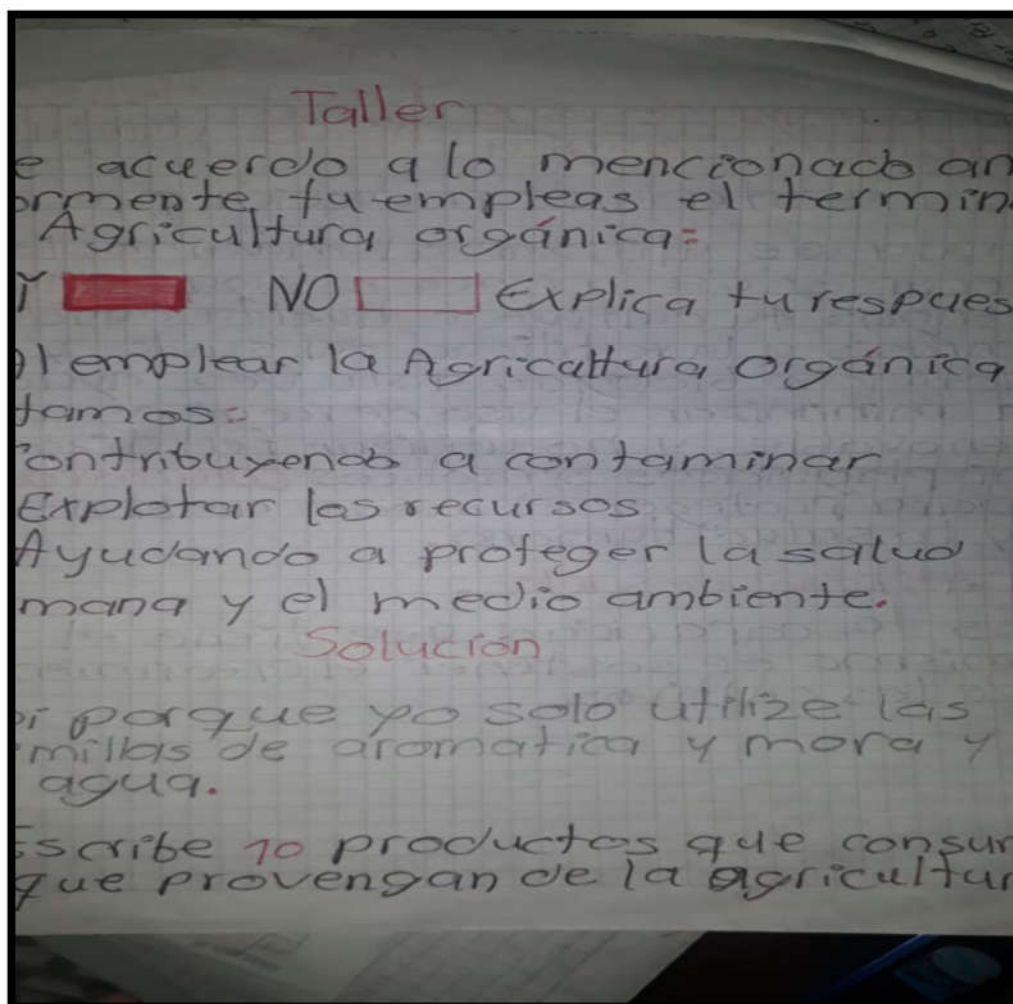 Taller
e acuerdo a lo mencionado an
ormente tu empleas el termin
Agricultura orgánica:
NO Explica tu respues
Al emplear la Agricultura Orgánica
tamos:
Contribuyendo a contaminar
Explotar los recursos
Ayudando a proteger la salud
mana y el medio ambiente.
Solución
si porque yo solo utilize las
millas de aromatica y mora y
agua.
Escribe 10 productos que consum
que provengan de la agricultur